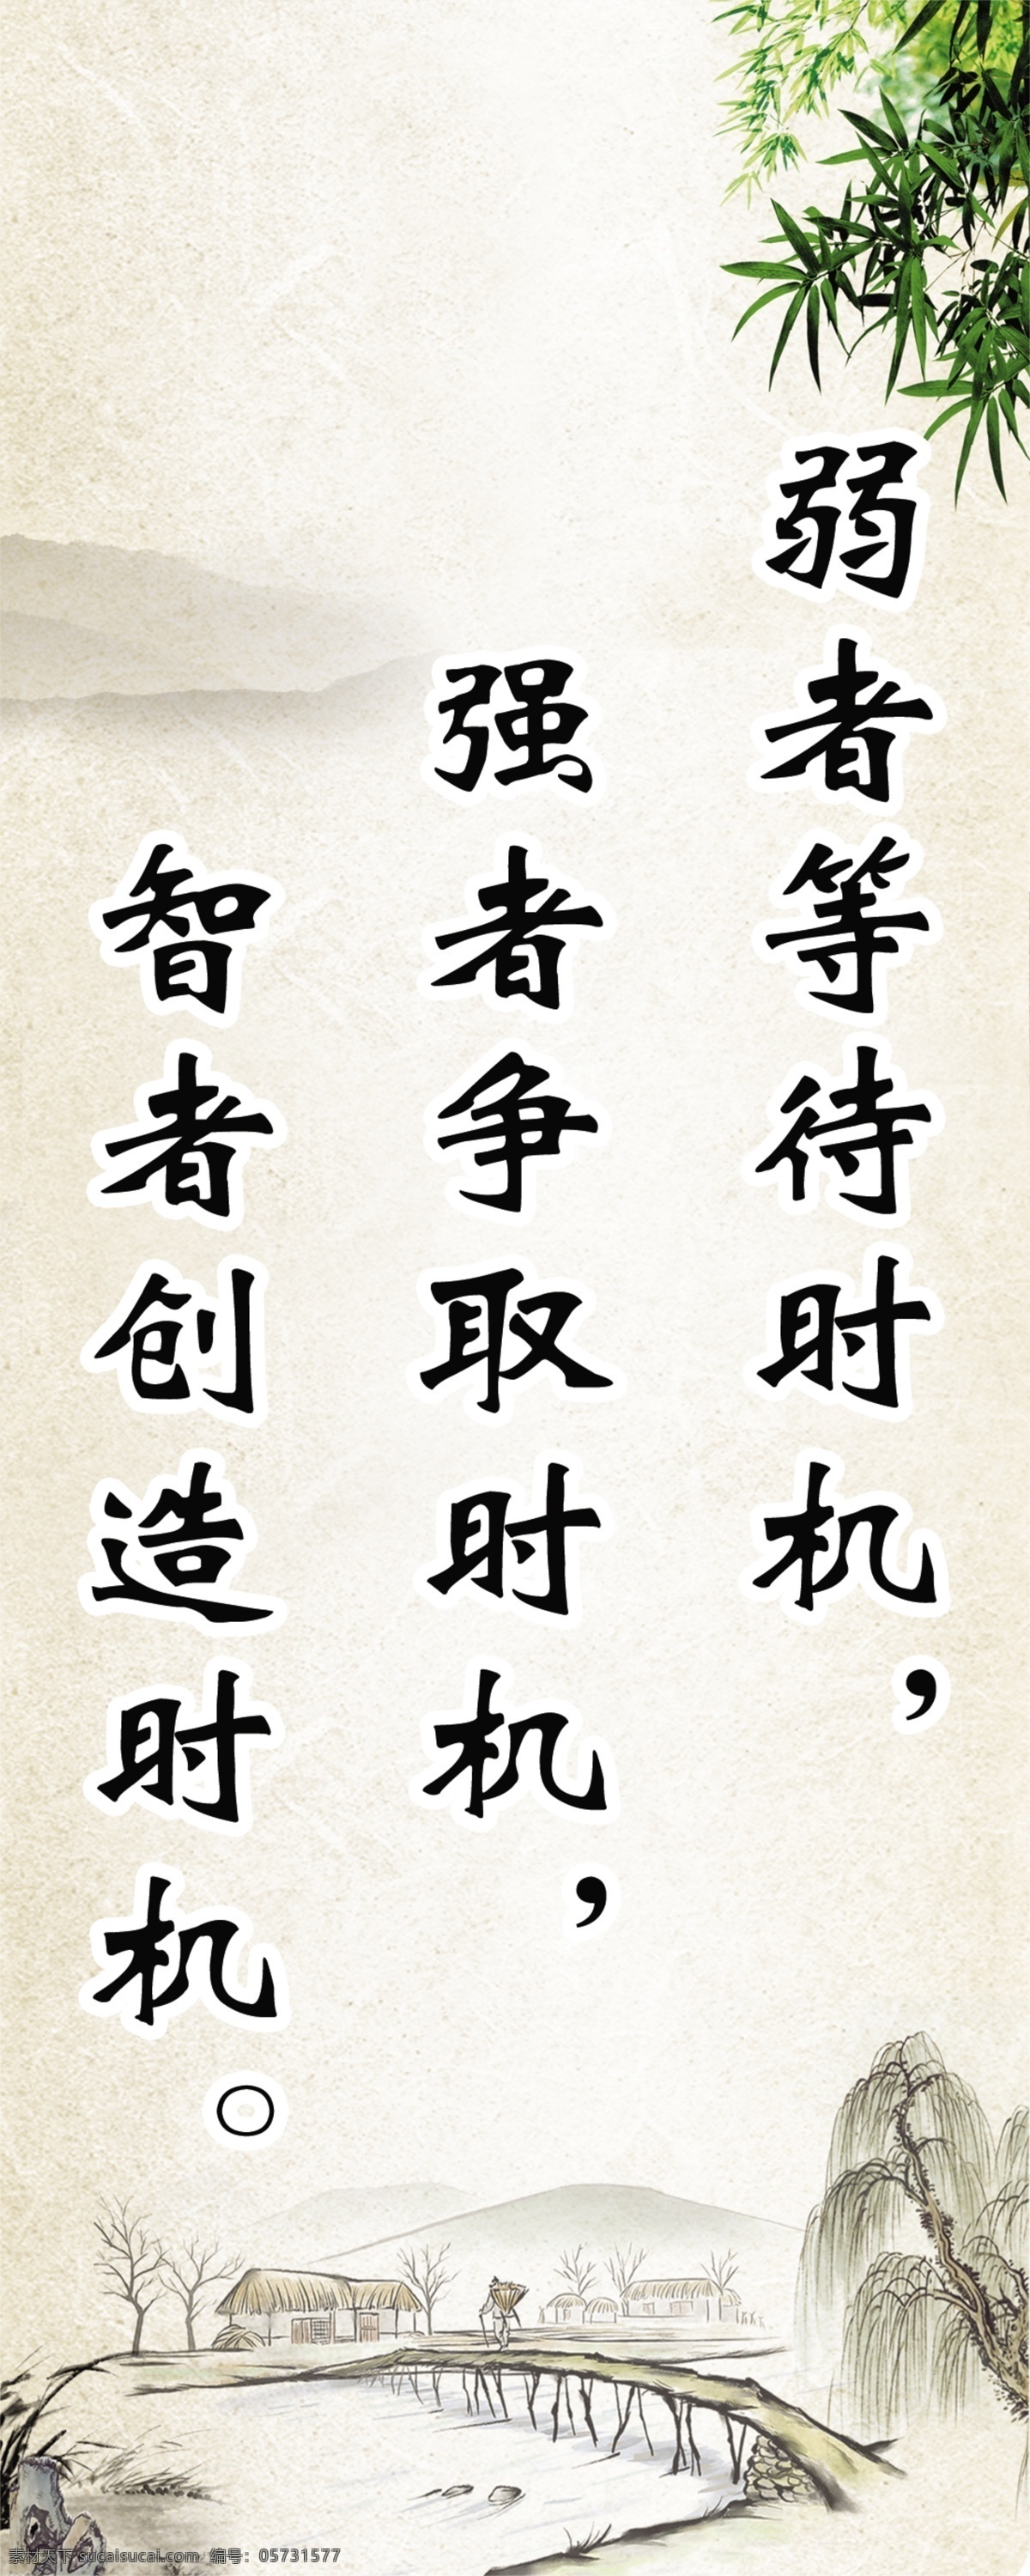 弱者等待时机，
强者争取时机，
智者创造时机。
素材天下 sucaisucai.com 编号：05731577